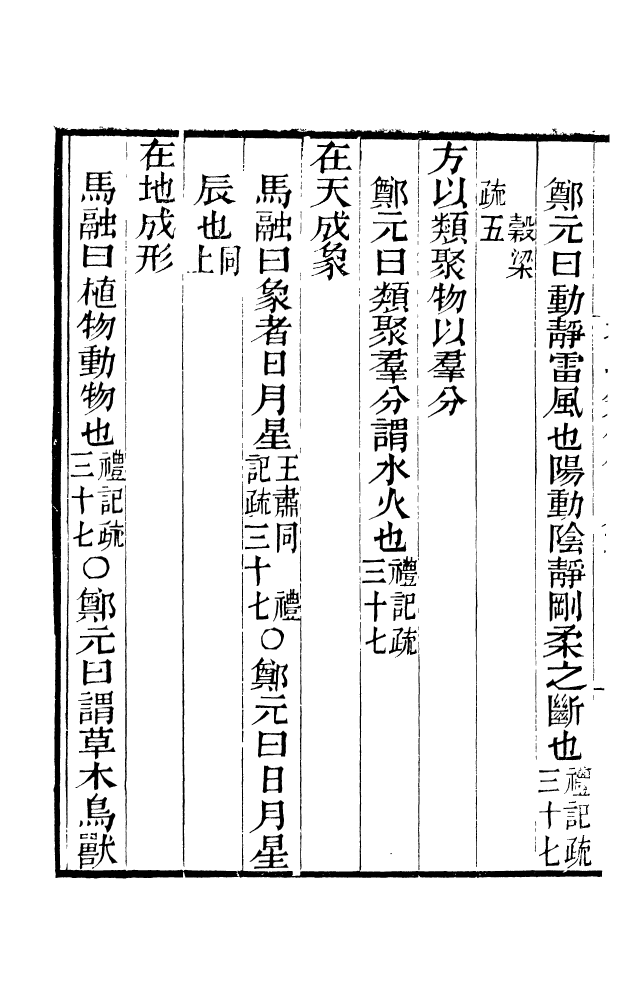 鄭元曰動靜雷風也陽動陰靜剛柔之斷也禮記疏三十七
穀梁疏五
方以類聚物以羣分
鄭元曰類聚羣分謂水火也禮記疏三十七
在天成象
馬融曰象者日月星王肅同 禮記疏三十七〇鄭元曰日月星
辰也同上
在地成形
馬融曰植物動物也禮記疏三十七〇鄭元曰謂草木鳥獸